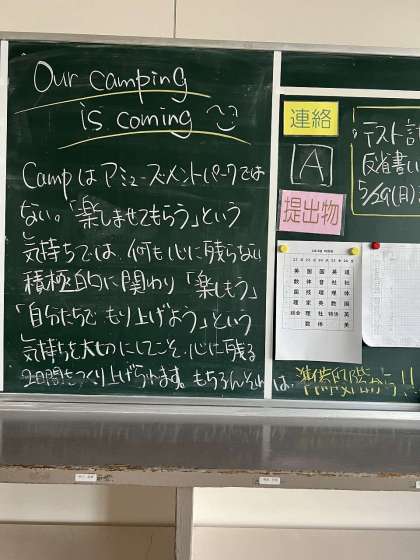 Our camping
is coming
Campはアミューズメントパークでは
ない。「楽しませてもらう」という
気持ちでは、何も心に残らない
積極的に関わり「楽しもう」
「自分たちでもり上げよう」という
気持ちを大切にしてこそ、心に残る
2日間をつくり上げられます。もちろんそれは、準備段階から!!
連絡
テスト計
A
反省書い
5/29(月)
提出物
英 国 国 英 理
数 体 音 社 社
国 技 理 理 体
理 家 英 数 国
総合 理 社 特活 英
数 体 美